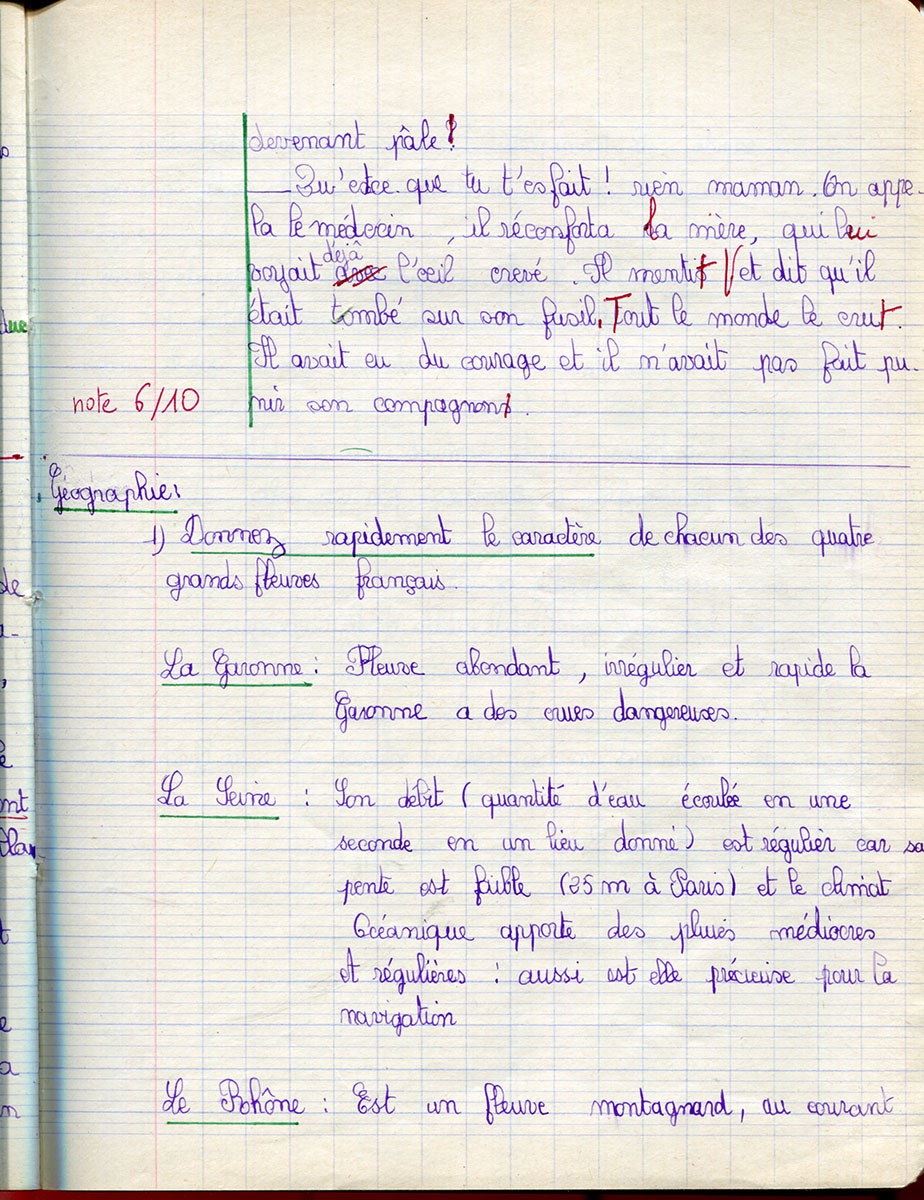 devenant pâle!
— Qu'est ce que tu t'es fait ! rien maman. On appe-
la le médecin, il réconforta la mère, qui lui
déjà
voyait l'œil crevé. Il mentit et dit qu'il
était tombé sur son fusil. Tout le monde le crut.
Il avait eu du courage et il n'avait pas fait pu-
note 6/10
nir son compagnon.
Géographie:
1) Donnez rapidement le caractère de chacun des quatre
grands fleuves français.
La Garonne : Fleuve abondant, irrégulier et rapide la
Garonne a des crues dangereuses.
La Seine : Son débit (quantité d'eau écoulée en une
seconde en un lieu donné) est régulier car sa
pente est faible (25 m à Paris) et le climat
Océanique apporte des pluies médiocres
et régulières : aussi est elle précieuse pour la
navigation
Le Rohône : Est un fleuve montagnard, au courant